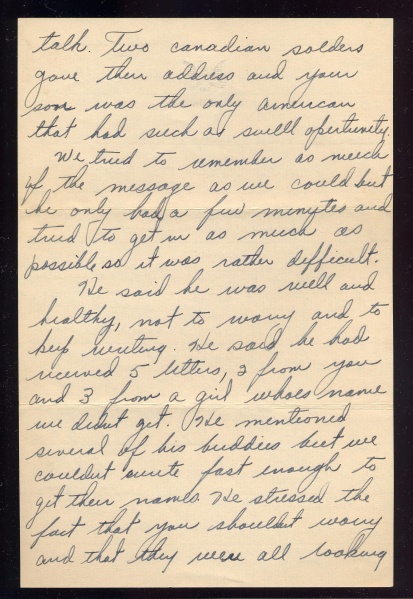 talk. Two canadian solders
gave their address and your
son was the only american
that had such a swell opertunity.
We tried to remember as much
of the message as we could but
he only had a few minytes and
tried to get in as much as
possible so it was rather difficult.
He said he was well and
healthy, not to worry and to
keep writing. He said he had
received 5 letters, 2 from you
and 3 from a girl whoes name
we didnt get. He mentioned
several of his buddies but we
couldnt write fast enough to
get their names. He stressed the
fact that you shouldnt worry
and that they were all looking